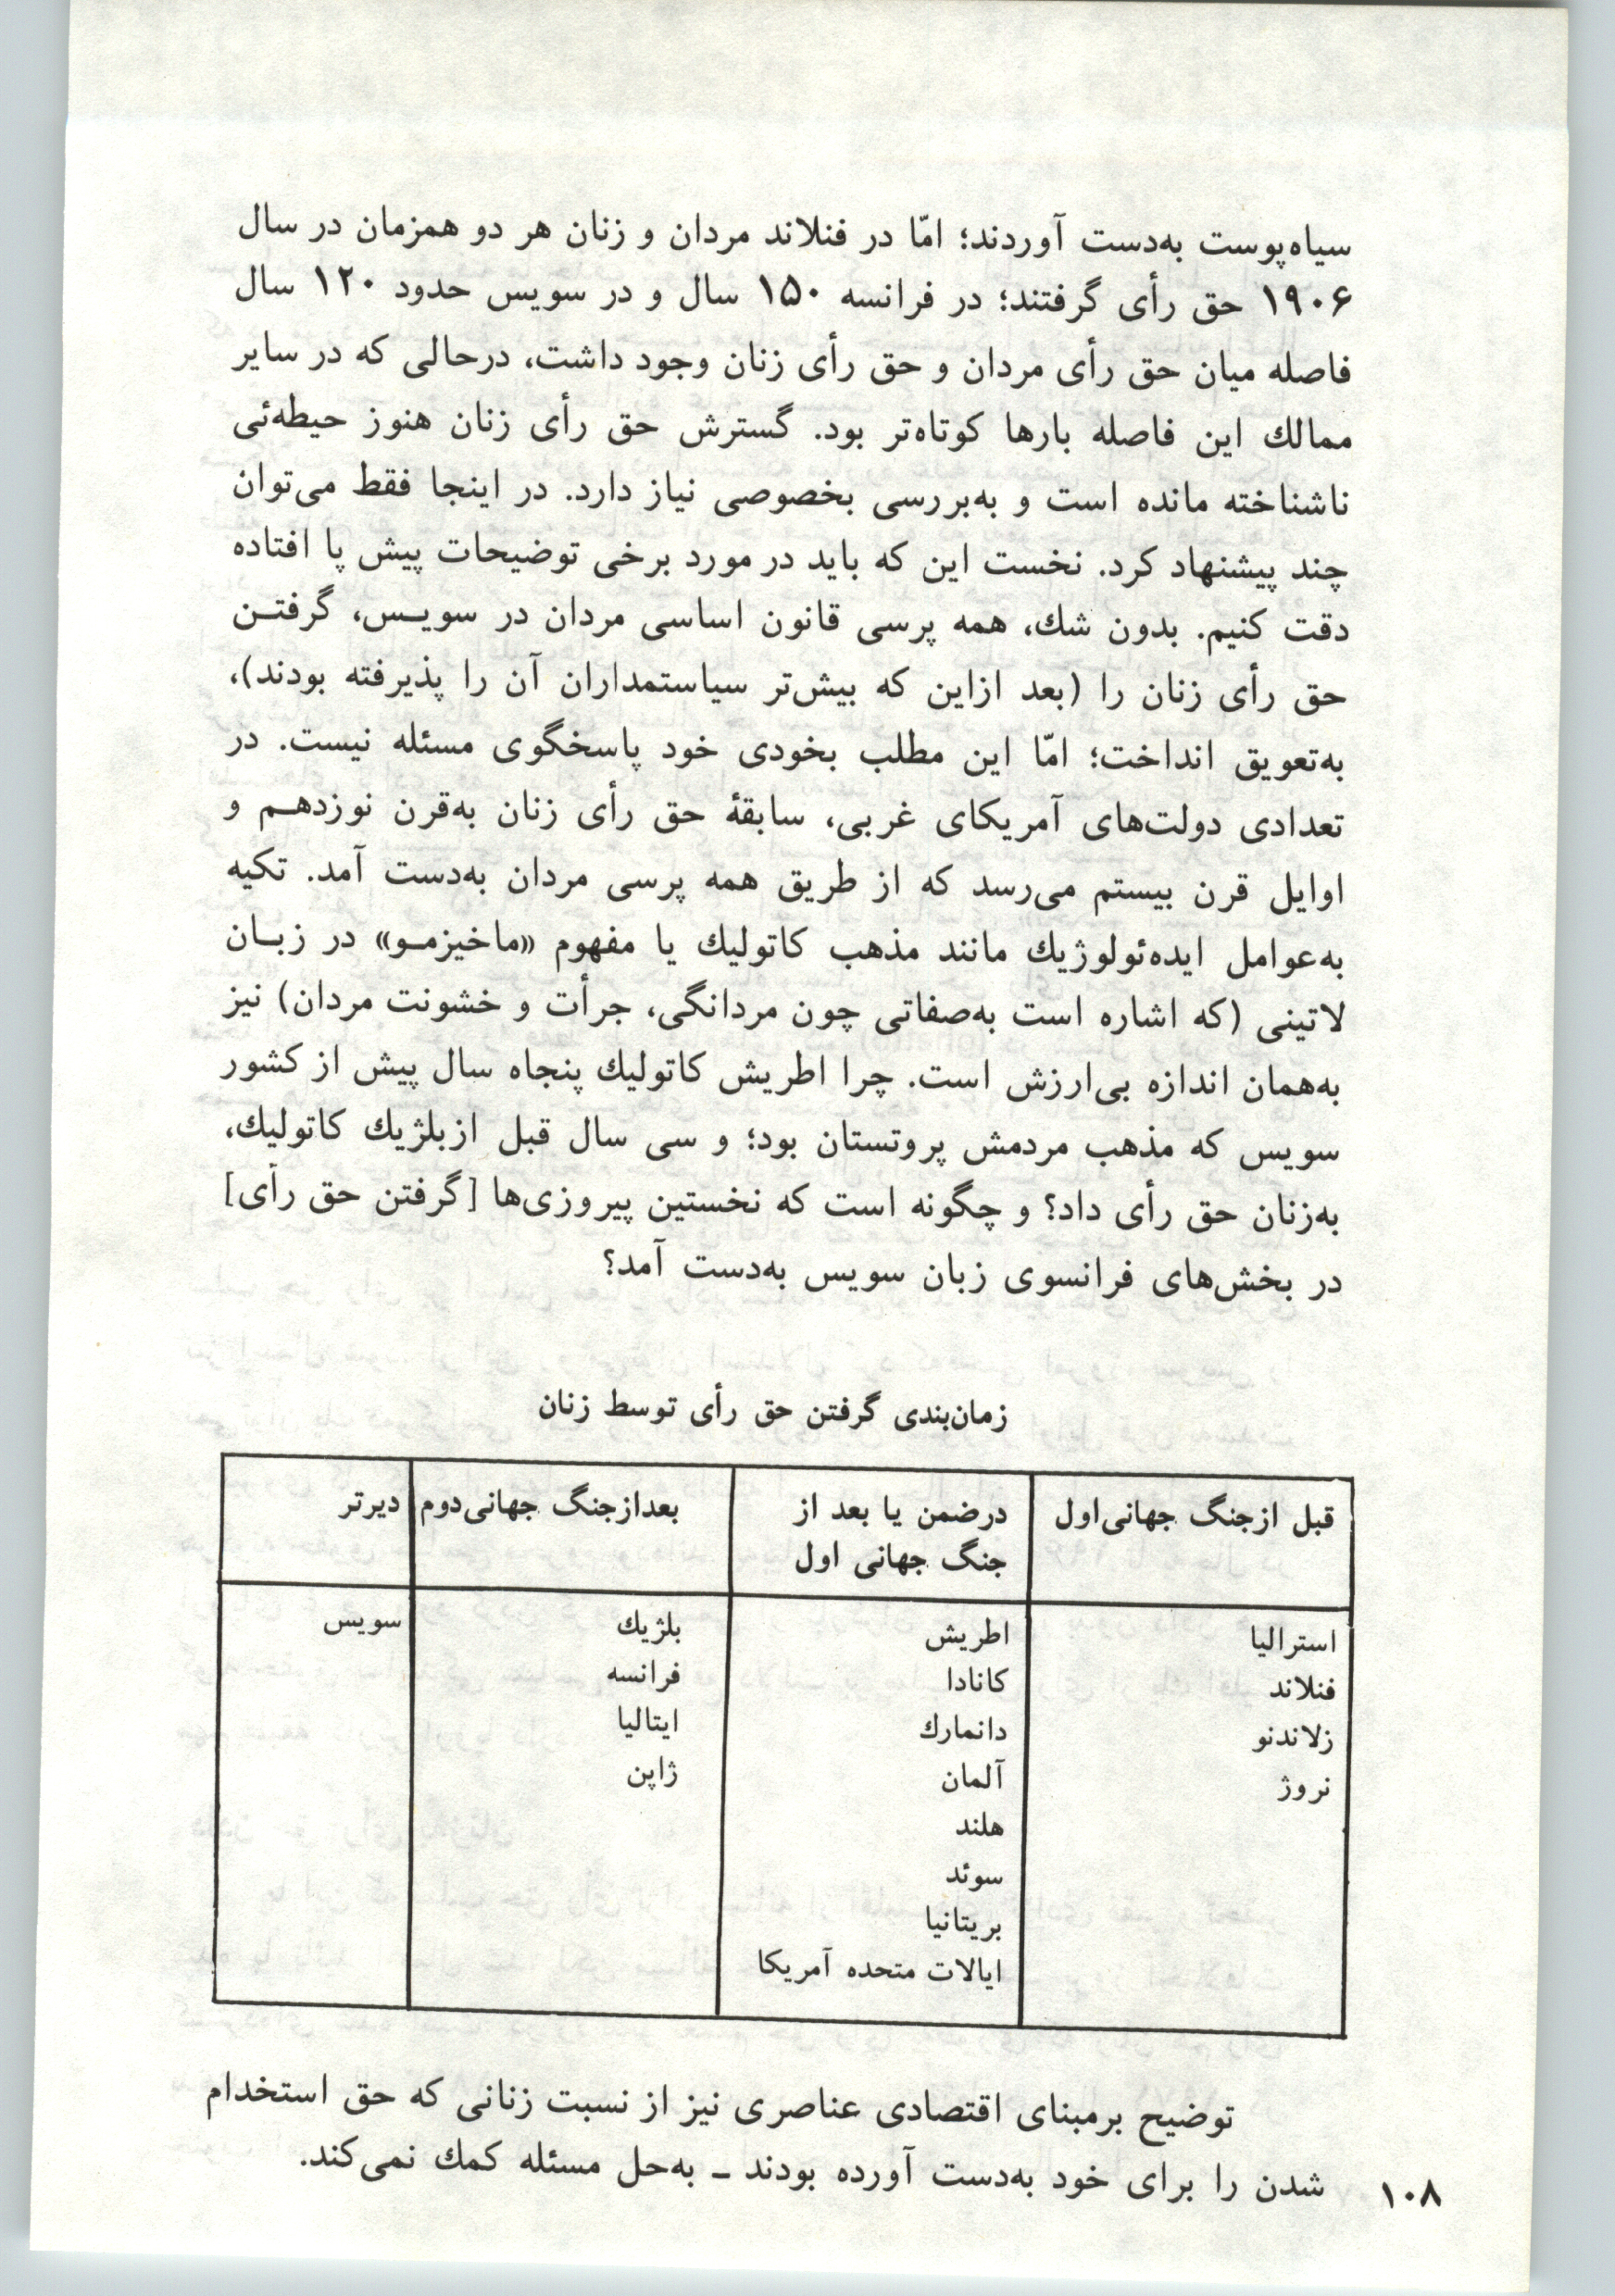 سیاه‌پوست به‌دست آوردند؛ امّا در فنلاند مردان و زنان هر دو همزمان در سال
۱۹۰۶ حق رأی گرفتند؛ در فرانسه ۱۵۰ سال و در سویس حدود ۱۲۰ سال
فاصله میان حق رأی مردان و حق رأی زنان وجود داشت، درحالی که در سایر
ممالك این فاصله بارها کوتاه‌تر بود. گسترش حق رأی زنان هنوز حیطه‌ئی
ناشناخته مانده است و به‌بررسی بخصوصی نیاز دارد. در اینجا فقط می‌توان
چند پیشنهاد کرد. نخست این که باید در مورد برخی توضیحات پیش پا افتاده
دقت کنیم. بدون شك، همه پرسی قانون اساسی مردان در سویـس، گرفتـن
حق رأی زنان را (بعد ازاین که بیش‌تر سیاستمداران آن را پذیرفته بودند)،
به‌تعویق انداخت؛ امّا این مطلب بخودی خود پاسخگوی مسئله نیست. در
تعدادی دولت‌های آمریکای غربی، سابقهٔ حق رأی زنان به‌قرن نوزدهـم و
اوایل قرن بیستم می‌رسد که از طریق همه پرسی مردان به‌دست آمد. تکیه
به‌عوامل ایده‌ئولوژیك مانند مذهب کاتولیك یا مفهوم «ماخیزمـو» در زبـان
لاتینی (که اشاره است به‌صفاتی چون مردانگی، جرأت و خشونت مردان) نیز
به‌همان اندازه بی‌ارزش است. چرا اطریش کاتولیك پنجاه سال پیش از کشور
سویس که مذهب مردمش پروتستان بود؛ و سی سال قبل ازبلژیك کاتولیك،
به‌زنان حق رأی داد؟ و چگونه است که نخستین پیروزی‌ها [گرفتن حق رأی]
در بخش‌های فرانسوی زبان سویس به‌دست آمد؟
زمان‌بندی گرفتن حق رأی توسط زنان
قبل ازجنگ جهانی‌اول
درضمن یا بعد از
جنگ جهانی اول
بعدازجنگ جهانی‌دوم
دیرتر
استرالیا
فنلاند
زلاندنو
نروژ
اطریش
کانادا
دانمارك
آلمان
هلند
سوئد
بریتانیا
ایالات متحده آمریکا
بلژیك
فرانسه
ایتالیا
ژاپن
سویس
توضیح برمبنای اقتصادی عناصری نیز از نسبت زنانی که حق استخدام
شدن را برای خود به‌دست آورده بودند ـ به‌حل مسئله کمك نمی‌کند.
۱۰۸